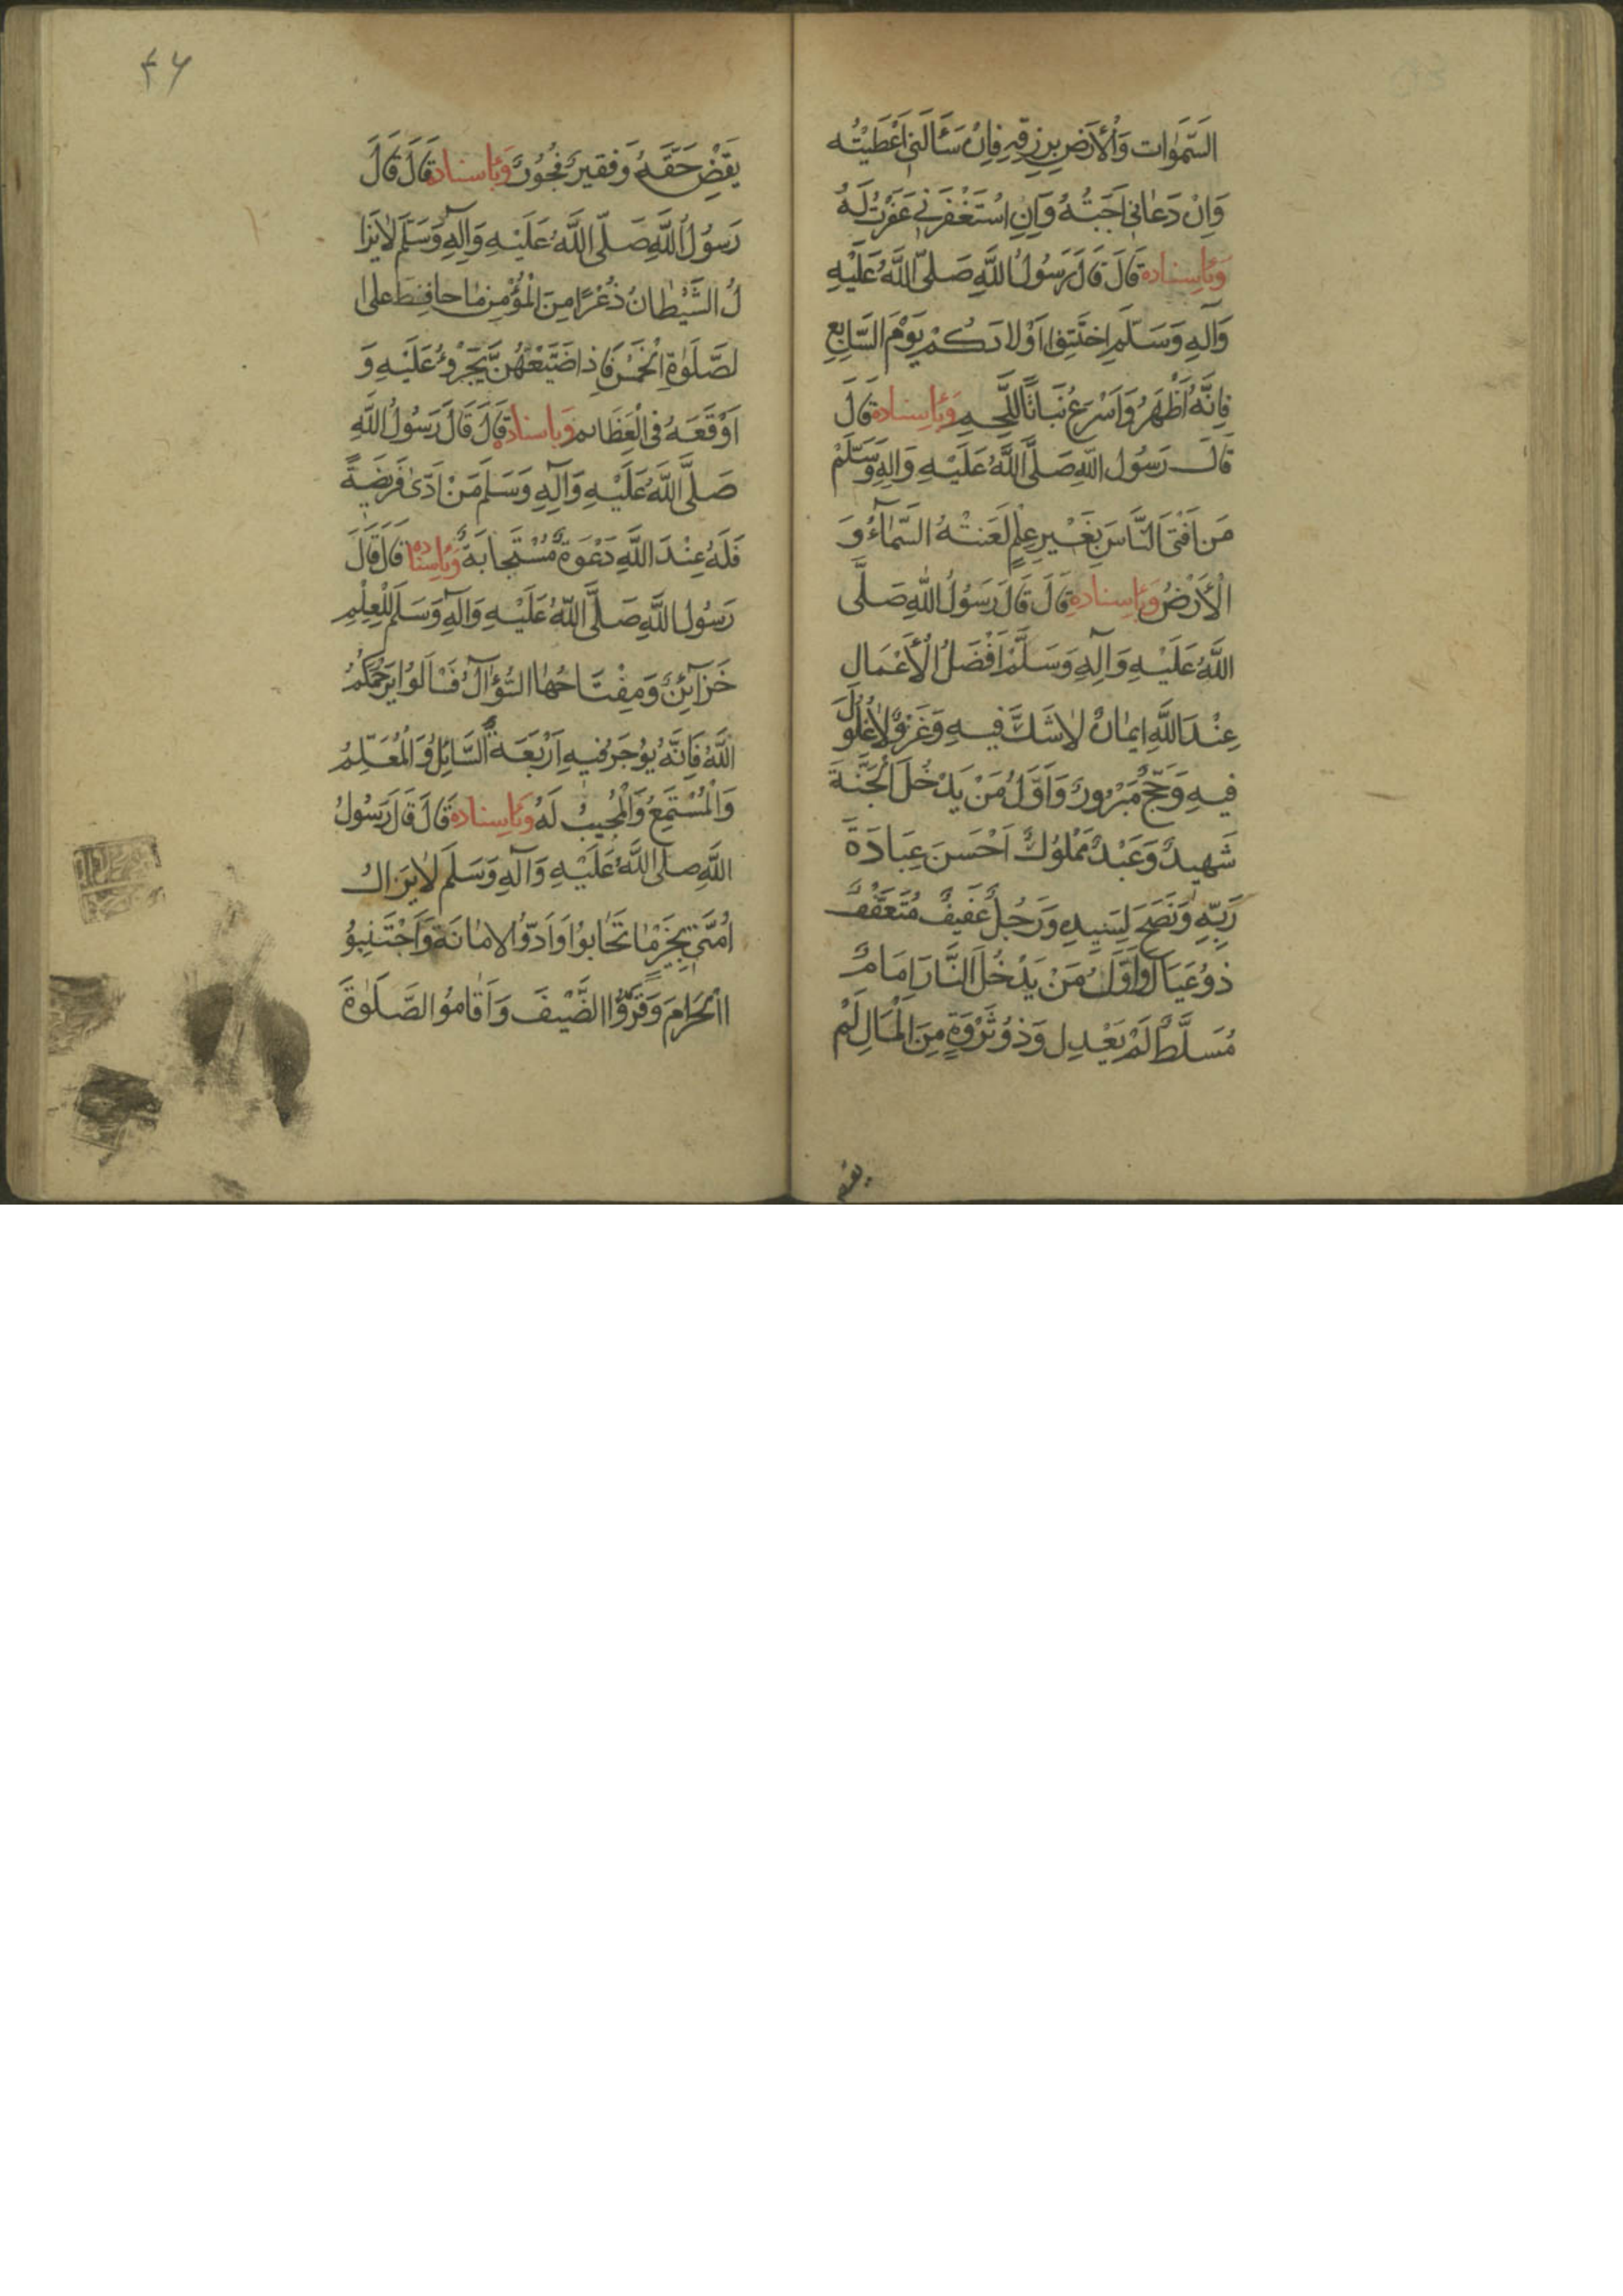 السَّمٰوات وَالْأَرَضِ بِرِزقِهِ فَاِنْ سَئَالَنِي اَعْطَيْتُه
وَاِنْ دَعانِي اَجَبْتُهُ وَاِنِ اسْتَغْفَرَنِي غَفَرْتُ لَهُ
وَبِاسناده قَالَ قَالَ رَسُولُ اللَّهِ صَلَّى اللَّهُ عَلَيْهِ
وَآلِهِ وَسَلَّمَ اِخْتَتِنُوا اَوْلادَكُمْ يَوْمَ السَّابِعِ
فَاِنَّهُ اَظْهَرُ وَاَسْرَعُ نَبَاتًا لِلَّحِمِ وَبِاسناده قَالَ
قَالَ رَسُول اللهِ صَلَّى اللَّهُ عَلَيْهِ وَالِهِ وَسَلَّمْ
مَن اَفْتَى النَّاسَ بِغَيْرِ عِلْمٍ لَعَنتْهُ السَّمآءُ وَ
الْأَرْضُ وَبِاسناده قَالَ قَالَ رَسُولُ اللهِ صَلَّى
اللَّهُ عَلَيْهِ وَآلِهِ وَسَلَّمْ اَفْضَلُ الْأَعْمَالِ
عِنْدَ اللَّهِ ايمٰانٌ لاٰشَكَّ فيهِ وَغَزْوٌ لاٰغُلُولَ
فيهِ وَحَجٌّ مَبْرُورٌ وَاَوَّلُ مَنْ يَدْخُلُ الْجَنَّةَ
شَهيدٌ وَعَبْدٌ مَمْلُوكٌ اَحْسَنَ عِبَادَةَ
رَبِّهِ وَنَصَحَ لِسَيِّدِهِ وَرَجُلٌ عَفيفٌ مُتَعَفِّفٌ
ذوُعَيَال وَاَوَّلُ مَنْ يَدْخُلُ النَّارَ اِمَامٌ
مُسَلَّطٌ لَمْ يَعْدِل وَذوُثَرْوَةٍ مِنَ الْمَالِ لَمْ
يقض
٤٦
يَقْضِ حَقَّهُ وَفَقيرٌ فَجُورٌ وَبِاسناده قَالَ قَالَ
رَسُولُ اللَّهِ صَلَّى اللَّهُ عَلَيْهِ وَآلِهِ وَسَلَّمَ لاٰيَزَا
لُ الشَّيْطانُ ذُعْرًا مِنَ الْمُؤْمِنِ مٰا حافَظَ عَلىَ ا
لصَّلَوٰةِ الْخَمْسِ فَاِذا ضَيَّعَهُنَّ يَجَرْؤُ عَلَيْهِ وَ
اَوْقَعَهُ فى الْعِظَائم وَباسناده قَالَ قَالَ رَسُولُ اللَّهِ
صَلَّى اللَّهُ عَلَيْهِ وَآلِهِ وَسَلَّمَ مَنْ اَدّىٰ فَرَيضَةً
فَلَهُ عِنْدَ اللَّهِ دَعْوَةٌ مُسْتَجابَةٌ وَبِاسناده قَالَ قَالَ
رَسُول اللَّهِ صَلَّى اللَّهُ عَلَيْهِ وَالِهِ وَسَلَّمَ لِلْعِلْمِ
خَزَآئِنٌ وَمِفْتَاحُهٰا السُّؤآلُ فَسْالَوُا يَرْحَمُكُمُ
اللَّهُ فَاِنَّهُ يوُجَرُ فيهِ اَرْبَعَةٌ السَّائِلُ وَالْمُعَلِّمُ
وَالْمُسْتَمِعُ وَالْمُجيبُ لَهُ وَبِاسناده قَالَ قَالَ رَسُولُ
اللَّهِ صَلَى اللَّهُ عَلَيْهِ وَآلِهِ وَسَلَّمَ لاٰيَزالُ
اُمَّتي بِخَيْرٍ مٰا تَحَابوُا وَاَدّوُا الامٰانَةَ وَاَجْتَنِبوُ
االْحَرامَ وَقَرَّوُاالضَّيْفَ وَاَقٰاموُا الصَّلَوٰةَ